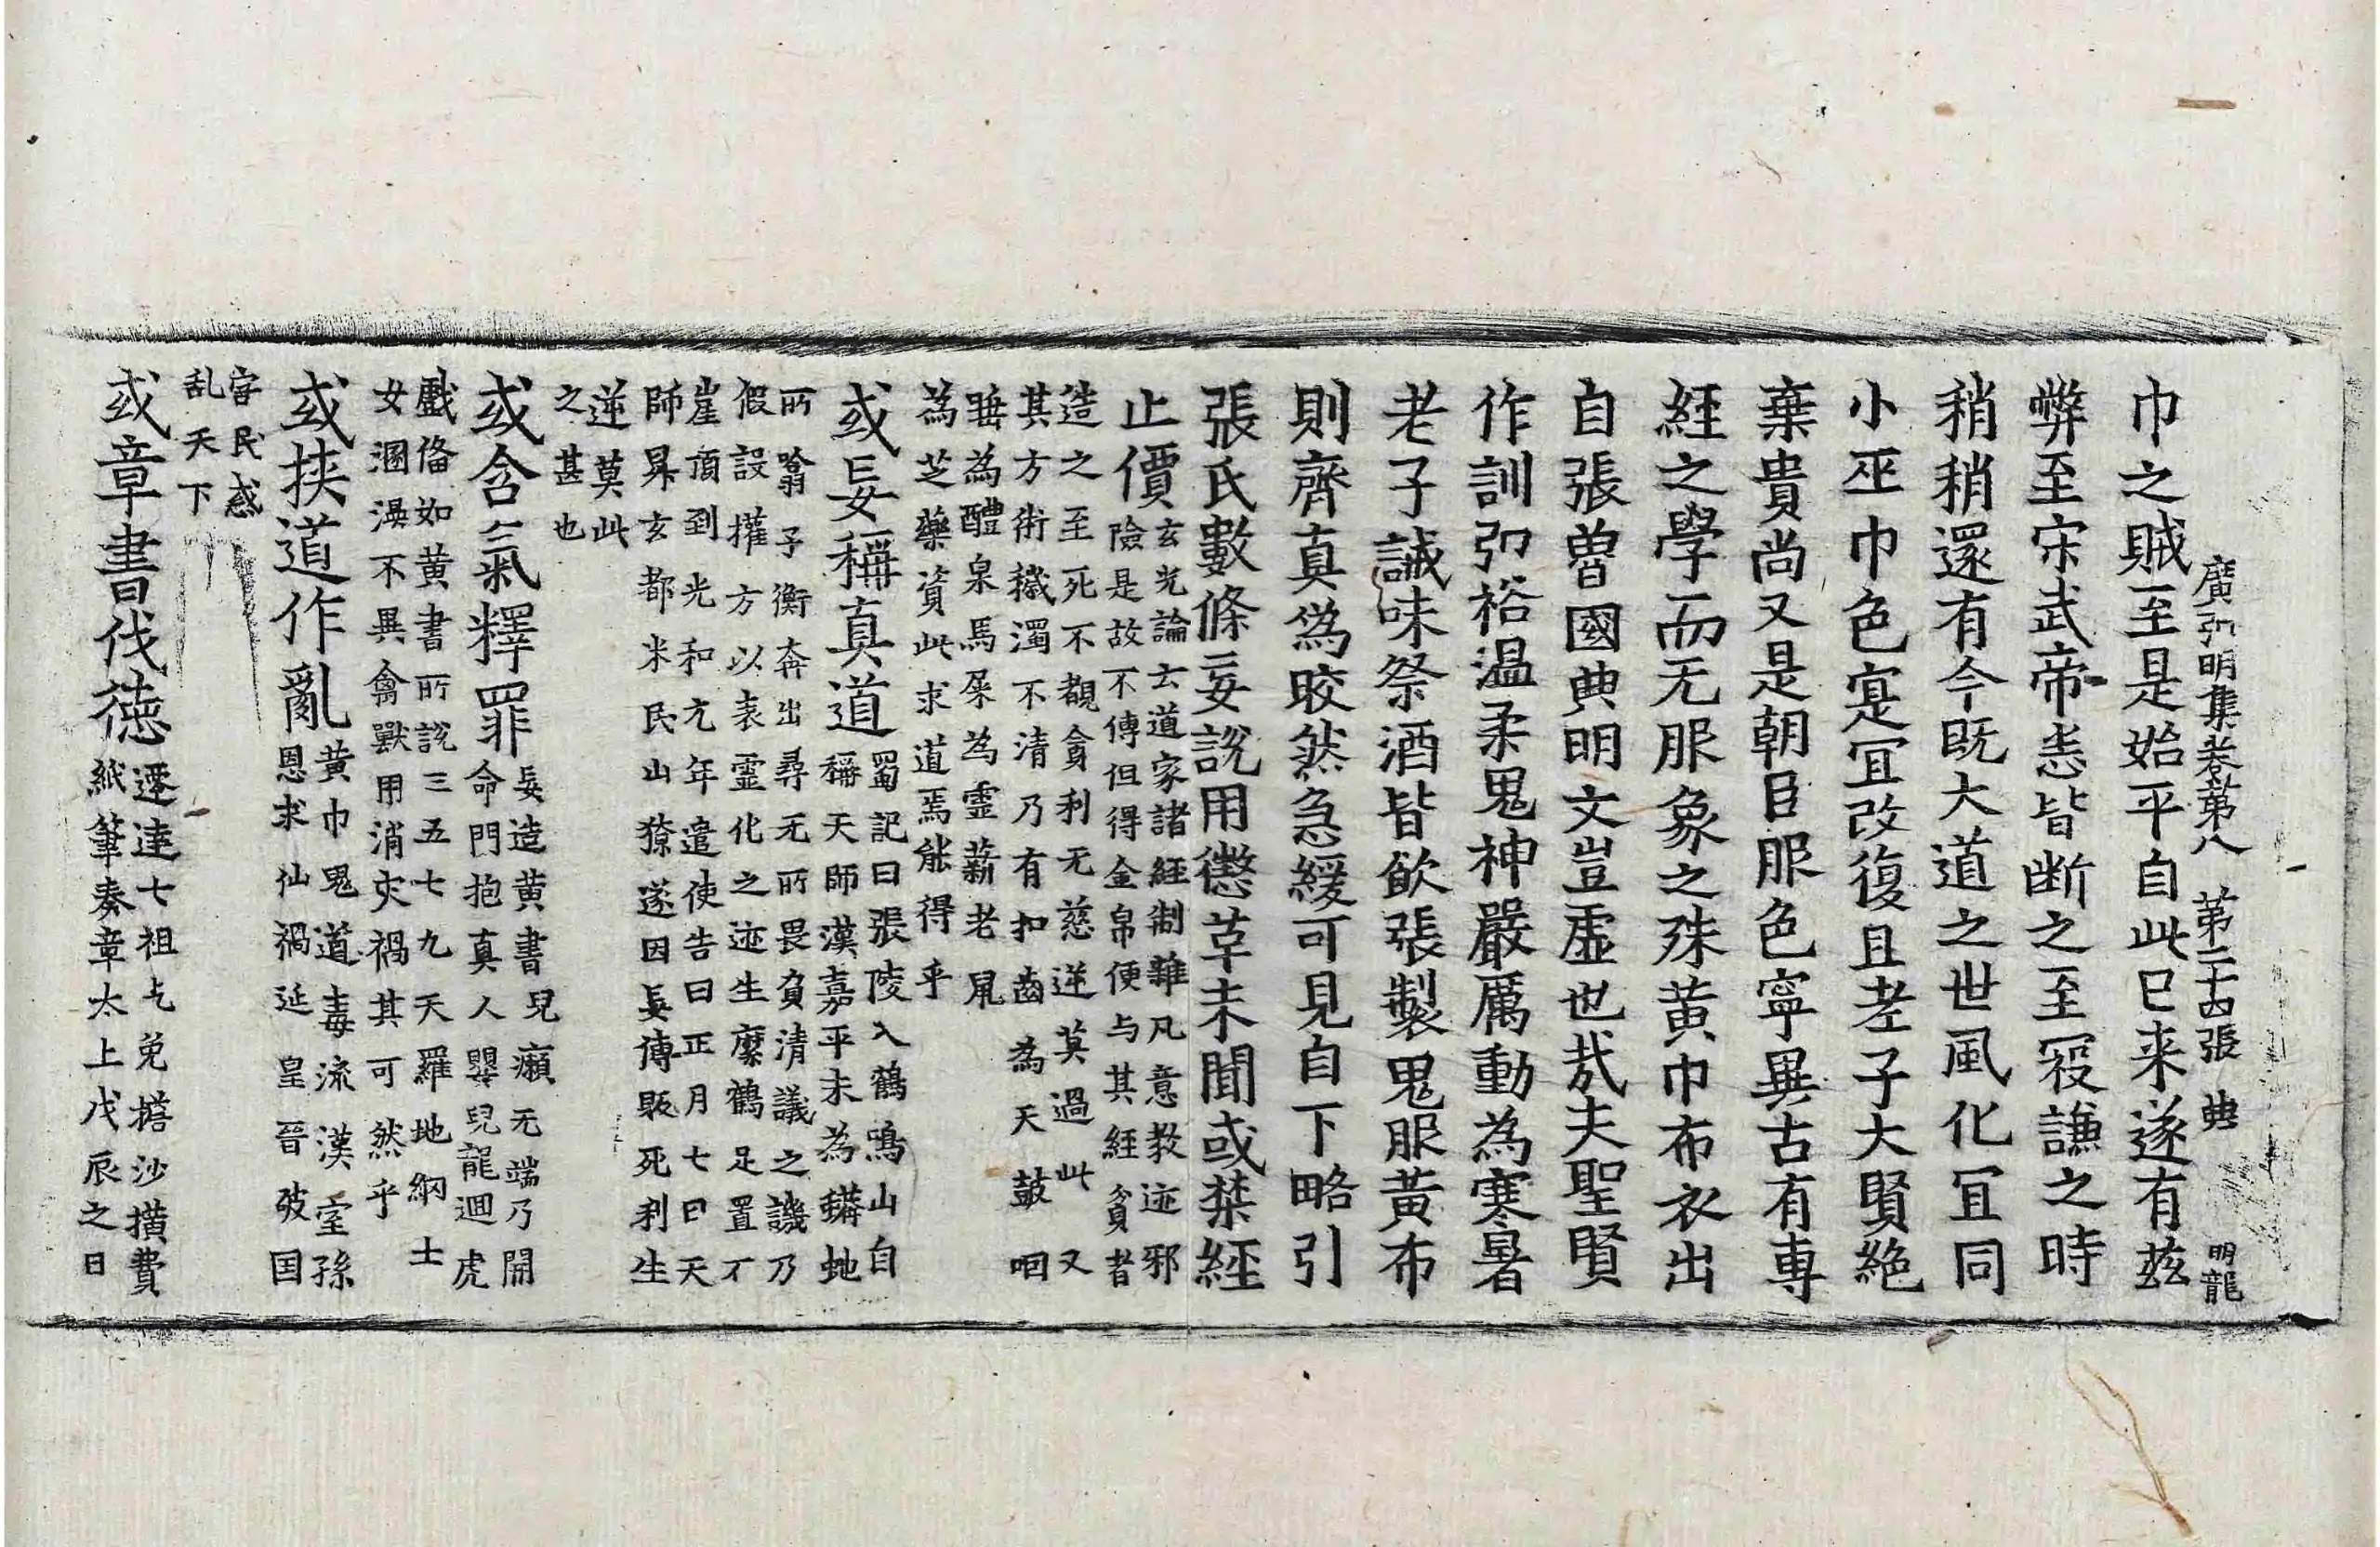 廣弘明集卷第八　第二十四張　典　明龍
巾之賊至是始平自此已来遂有玆
弊至宋武帝悉皆断之至寇謙之時
稍稍還有今既大道之世風化冝同
小巫巾色寔冝改復且孝子大賢絶
棄貴尚又是朝臣服色寧異古有專
經之學而无服象之殊黄巾布衣出
自張曾國典明文豈虛也㢤夫聖賢
作訓弘裕温柔鬼神嚴厲動為寒暑
老子誡味祭酒皆飲張製鬼服黃布
則齊真為皎然急緩可見自下略引
張氏數條妄說用懲革未聞或禁經
止價玄光論云道家諸經制雜凡意教迹邪
險是故不傳但得金帛便与其經貧者
造之至死不覩貪利无慈逆莫過此又
其方術穢濁不清乃有扣齒為天鼓咽
唾為醴泉馬屎為靈薪老鼠
為芝藥資此求道焉能得乎
或妄稱真道蜀記曰張陵入鶴鳴山自
稱天師漢嘉平末為蟒虵
所噏子衡奔出尋无所畏負清議之譏乃
假設權方以表靈化之迹生縻鶴足置石
崖頂到光和元年遣使告曰正月七日天
師昇玄都米民山獠遂因妄傳販死利生
逆莫此
之甚也
或含氣釋罪妄造黄書兒癩无端乃開
命門抱真人嬰兒龍迴虎
戲俻如黄書所說三五七九天羅地網士
女溷漫不異禽獸用消灾禍其可然乎
或挾道作亂黄巾鬼道毒流漢室孫
恩求仙禍延皇晉破国
害民惑
乱天下
或章書伐德遷達七祖乞免搭沙攢費
紙筆奏章太上戊辰之日